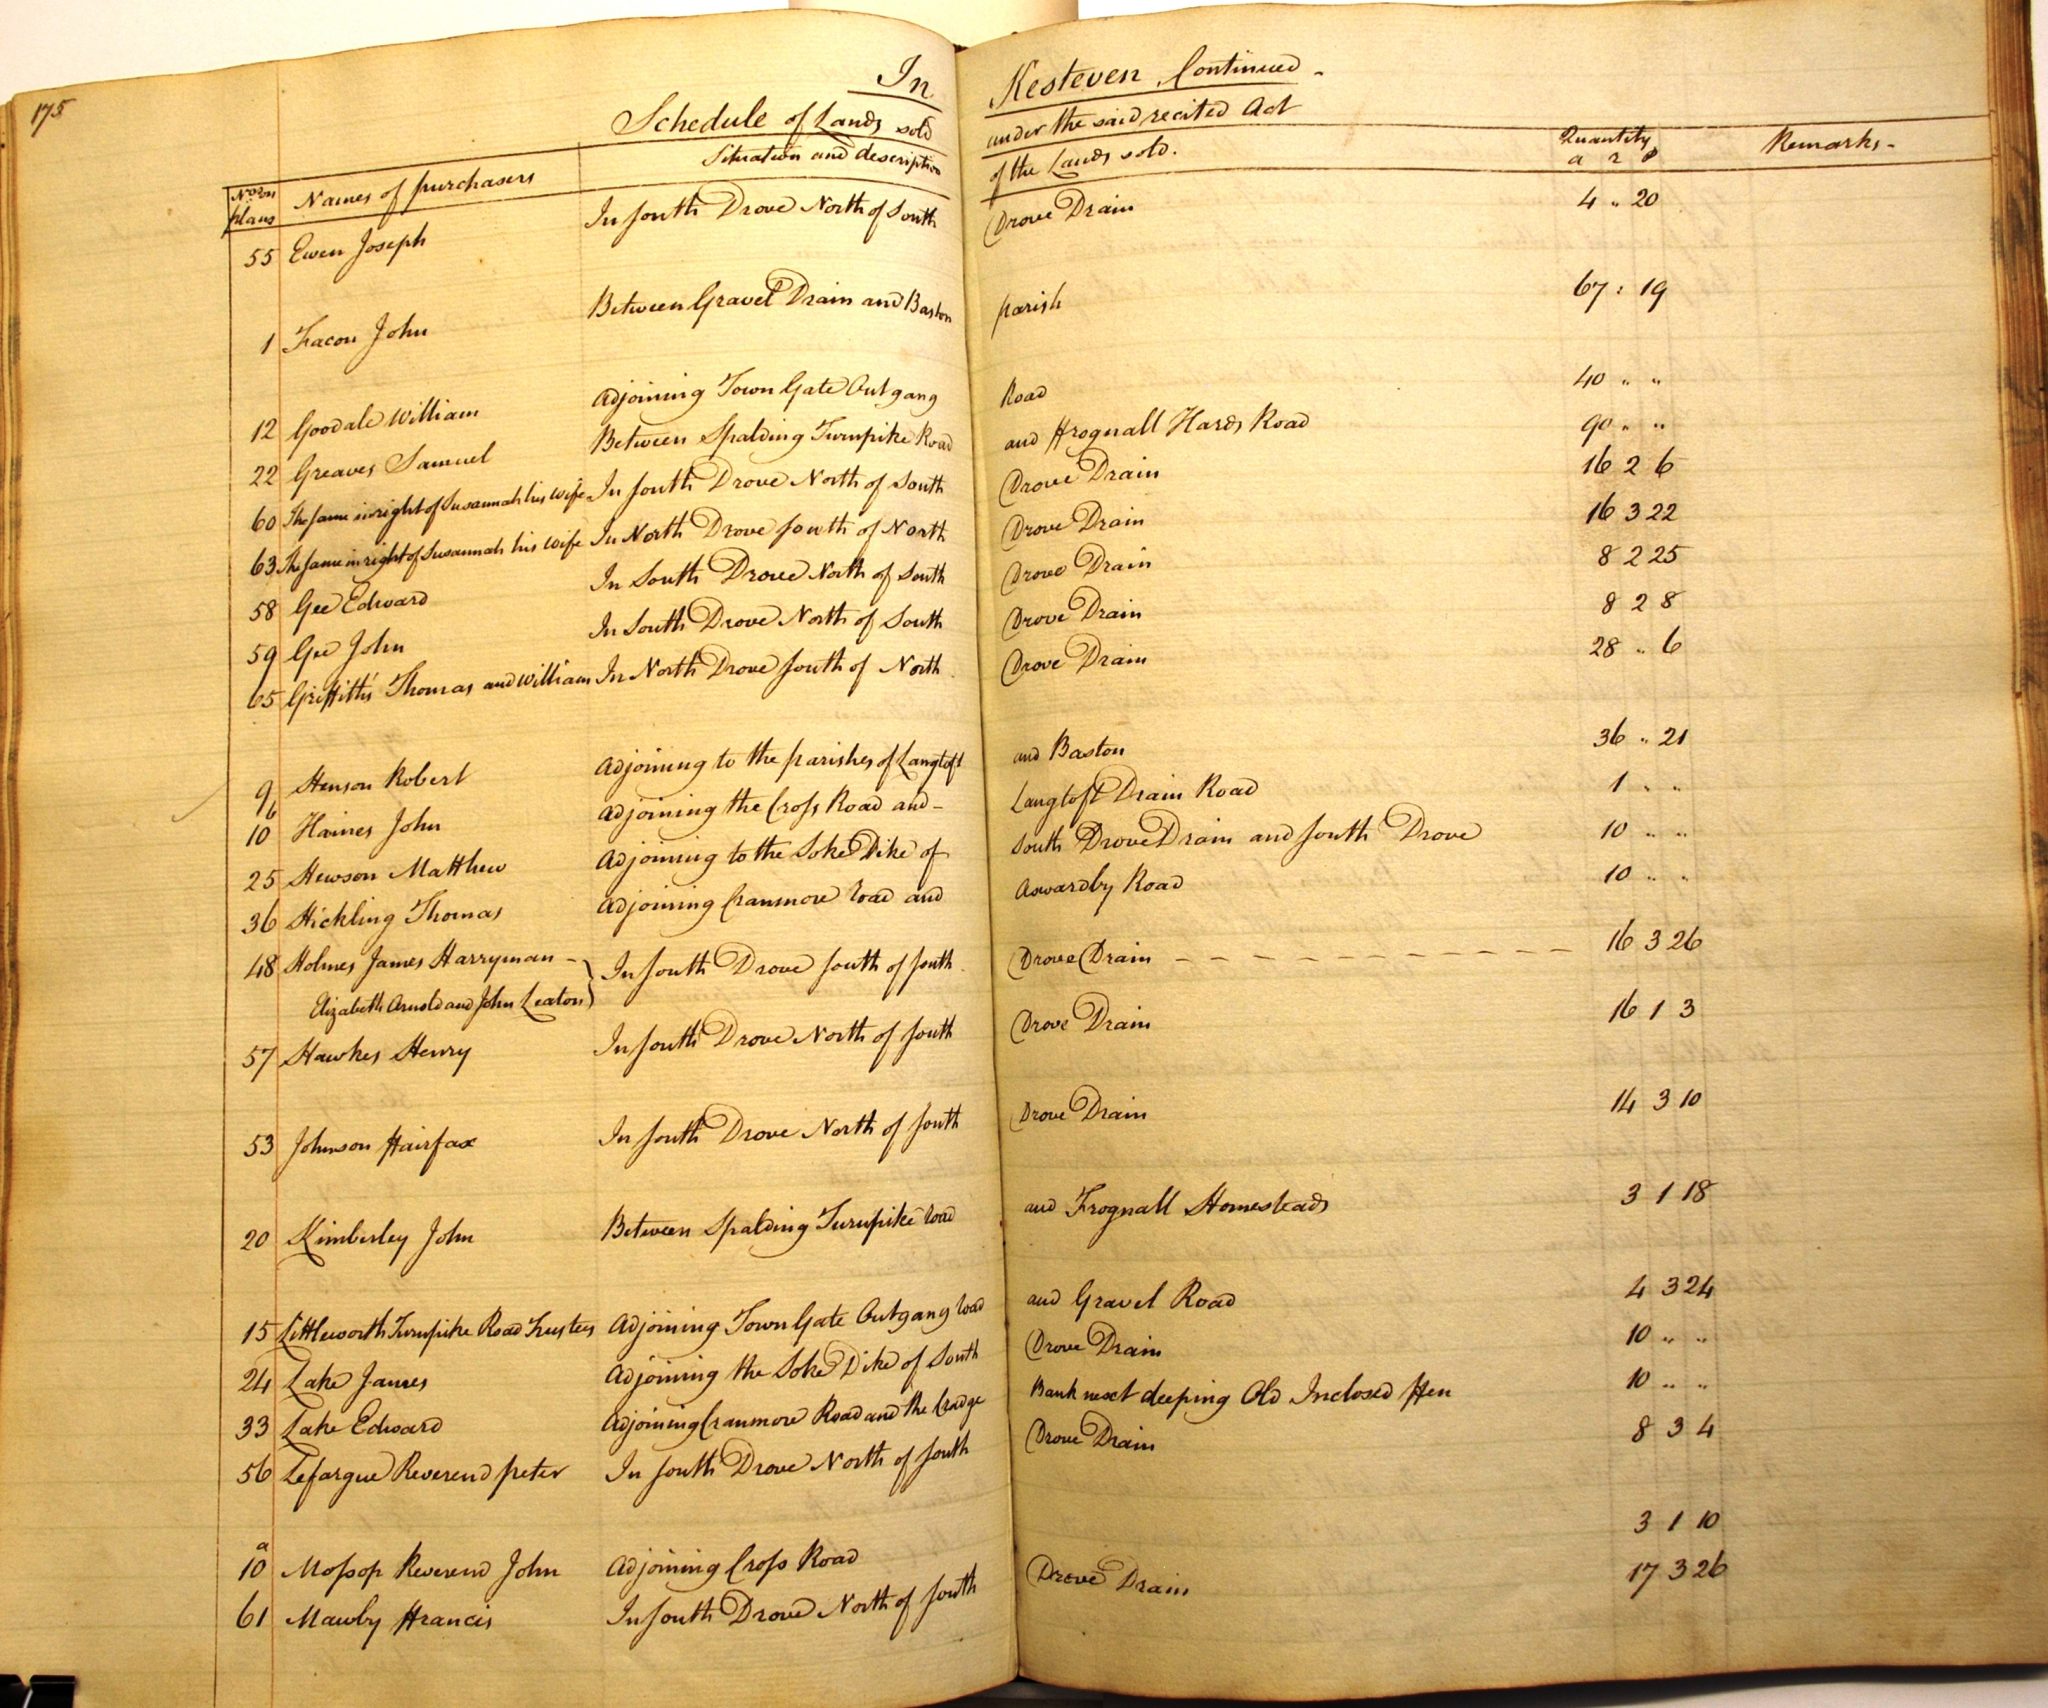 175
In Kesteven Continued -
Schedule of Lands sold under the said recited Act
No. on plans Names of purchasers Situation and description of the Lands sold. Quantity a r p Remarks -
55 Ewen Joseph In South Drove North of South Drove Drain 4 " 20
1 Facon John Between Gravel Drain and Baston parish 67 : 19
12 Goodale William Adjoining Town Gate Outgang Road 40 " "
22 Greaves Samuel Between Spalding Turnpike Road and Frognall Hards Road 90 " "
60 The same in right of Susannah his wife In South Drove North of South Drove Drain 16 2 6
63 The same in right of Susannah his wife In North Drove South of North Drove Drain 16 3 22
58 Gee Edward In South Drove North of South Drove Drain 8 2 25
59 Gee John In South Drove North of South Drove Drain 8 2 8
65 Griffiths Thomas and William In North Drove South of North Drove Drain 28 " 6
9 Henson Robert Adjoining to the parishes of Langtoft and Baston 36 " 21
10 b Haines John Adjoining the Cross Road and - Langtoft Drain Road 1 " "
25 Hewson Matthew Adjoining to the Soke Dike of South Drove Drain and South Drove 10 " "
36 Hickling Thomas Adjoining Cranmore road and Aswardby Road 10 " "
48 Holmes James Harryman - In South Drove South of South Drove Drain - - - - - - - - - - - 16 3 26
Elizabeth Arnold and John Leaton }
57 Hawkes Henry In South Drove North of South Drove Drain 16 1 3
53 Johnson Fairfax In South Drove North of South Drove Drain 14 3 10
20 Kimberley John Between Spalding Turnpike road and Frognall Homesteads 3 1 18
15 Littleworth Turnpike Road Trustees Adjoining Town Gate Outgang road and Gravel Road 4 3 24
24 Lake James Adjoining the Soke Dike of South Drove Drain 10 " "
33 Lake Edward Adjoining Cranmore Road and the Cradge Bank next deeping Old Inclosed Fen 10 " "
56 Lefargue Reverend peter In South Drove North of South Drove Drain 8 3 4
10 a Mossop Reverend John Adjoining Cross Road 3 1 10
61 Mawby Francis In South Drove North of South Drove Drain 17 3 26